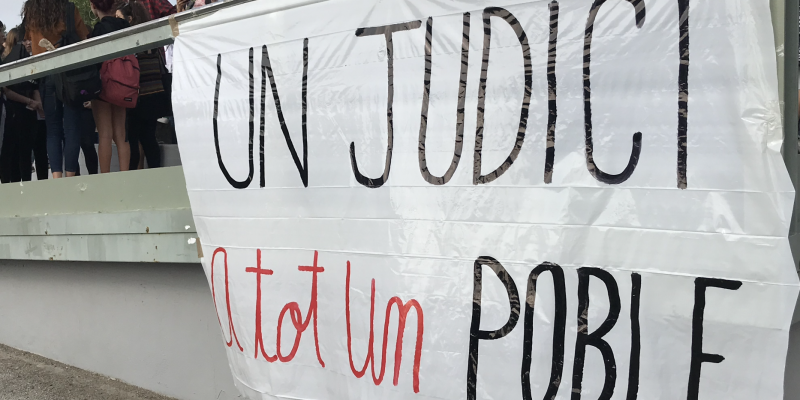 UN JUDICI
a tot un POBLE